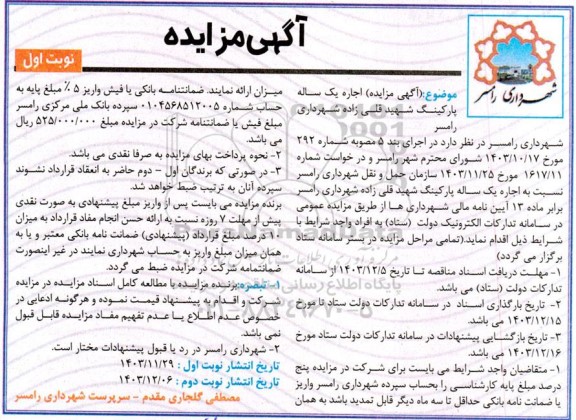 آگهی مزایده
نوبت اول
شهرداری رامسر
موضوع:(آگهی مزایده) اجاره یک ساله
پارکینگ شهید قلی زاده شهرداری
رامسر
شهرداری رامسر در نظر دارد در اجرای بند ۵ مصوبه شماره ۲۹۲
مورخ ۱۴۰۳/۱۰/۱۷ شورای محترم شهر رامسر و در خواست شماره
۱۶۱۷/۱۱ مورخ ۱۴۰۳/۱۱/۲۵ سازمان حمل و نقل شهرداری رامسر
نسبت به اجاره یک ساله پارکینگ شهید قلی زاده شهرداری رامسر
برابر ماده ۱۳ آیین نامه مالی شهرداری ها از طریق مزایده عمومی
در سامانه تدارکات الکترونیک دولت (ستاد) به افراد واجد شرایط با
شرایط ذیل اقدام نماید.(تمامی مراحل مزایده در بستر سامانه ستاد
برگزار می گردد)
۱- مهلت دریافت اسناد مناقصه تا تاریخ ۱۴۰۳/۱۲/۵ از سامانه
تدارکات دولت (ستاد) می باشد.
۲- تاریخ بارگذاری اسناد در سامانه تدارکات دولت ستاد تا مورخ
۱۴۰۳/۱۲/۱۵ می باشد.
۳- تاریخ بازگشایی پیشنهادات در سامانه تدارکات دولت ستاد مورخ
۱۴۰۳/۱۲/۱۶ می باشد.
۱- متقاضیان واجد شرایط می بایست برای شرکت در مزایده پنج
درصد مبلغ پایه کارشناسی را بحساب سپرده شهرداری رامسر واریز
یا ضمانت نامه بانکی حداقل تا سه ماه دیگر قابل تمدید باشد به همان
میزان ارائه نمایند. ضمانتنامه بانکی یا فیش واریز ۵ ٪ مبلغ پایه به
حساب شماره ۰۱۰۴۵۶۸۵۱۲۰۰۵ سپرده بانک ملی مرکزی رامسر
مبلغ فیش یا ضمانتنامه شرکت در مزایده مبلغ ۵۲۵/۰۰۰/۰۰۰ ریال
می باشد.
۲- نحوه پرداخت بهای مزایده به صرفا نقدی می باشد.
۳- در صورتی که برندگان اول - دوم حاضر به انعقاد قرارداد نشوند
سپرده آنان به ترتیب ضبط خواهد شد.
برنده مزایده می بایست پس از واریز مبلغ پیشنهادی به صورت نقدی
پیش از مهلت ۷ روزه نسبت به ارائه حسن انجام مفاد قرارداد به میزان
۱۰ درصد مبلغ قرارداد (پیشنهادی) ضمانت نامه بانکی معتبر و یا به
همان میزان مبلغ واریز به حساب شهرداری نمایند در غیر اینصورت
ضمانتنامه شرکت در مزایده ضبط می گردد.
۱- تبصره:برنده مزایده با مطالعه کامل اسناد مزایده در مزایده
شرکت و اقدام به پیشنهاد قیمت نموده و هرگونه ادعایی در
خصوص عدم اطلاع یا عدم تفهیم مفاد مزایده قابل قبول
نمی باشد.
۲- شهرداری رامسر در رد یا قبول پیشنهادات مختار است.
تاریخ انتشار نوبت اول : ۱۴۰۳/۱۱/۲۹
تاریخ انتشار نوبت دوم : ۱۴۰۳/۱۲/۰۶
مصطفی گلجاری مقدم - سرپرست شهرداری رامسر